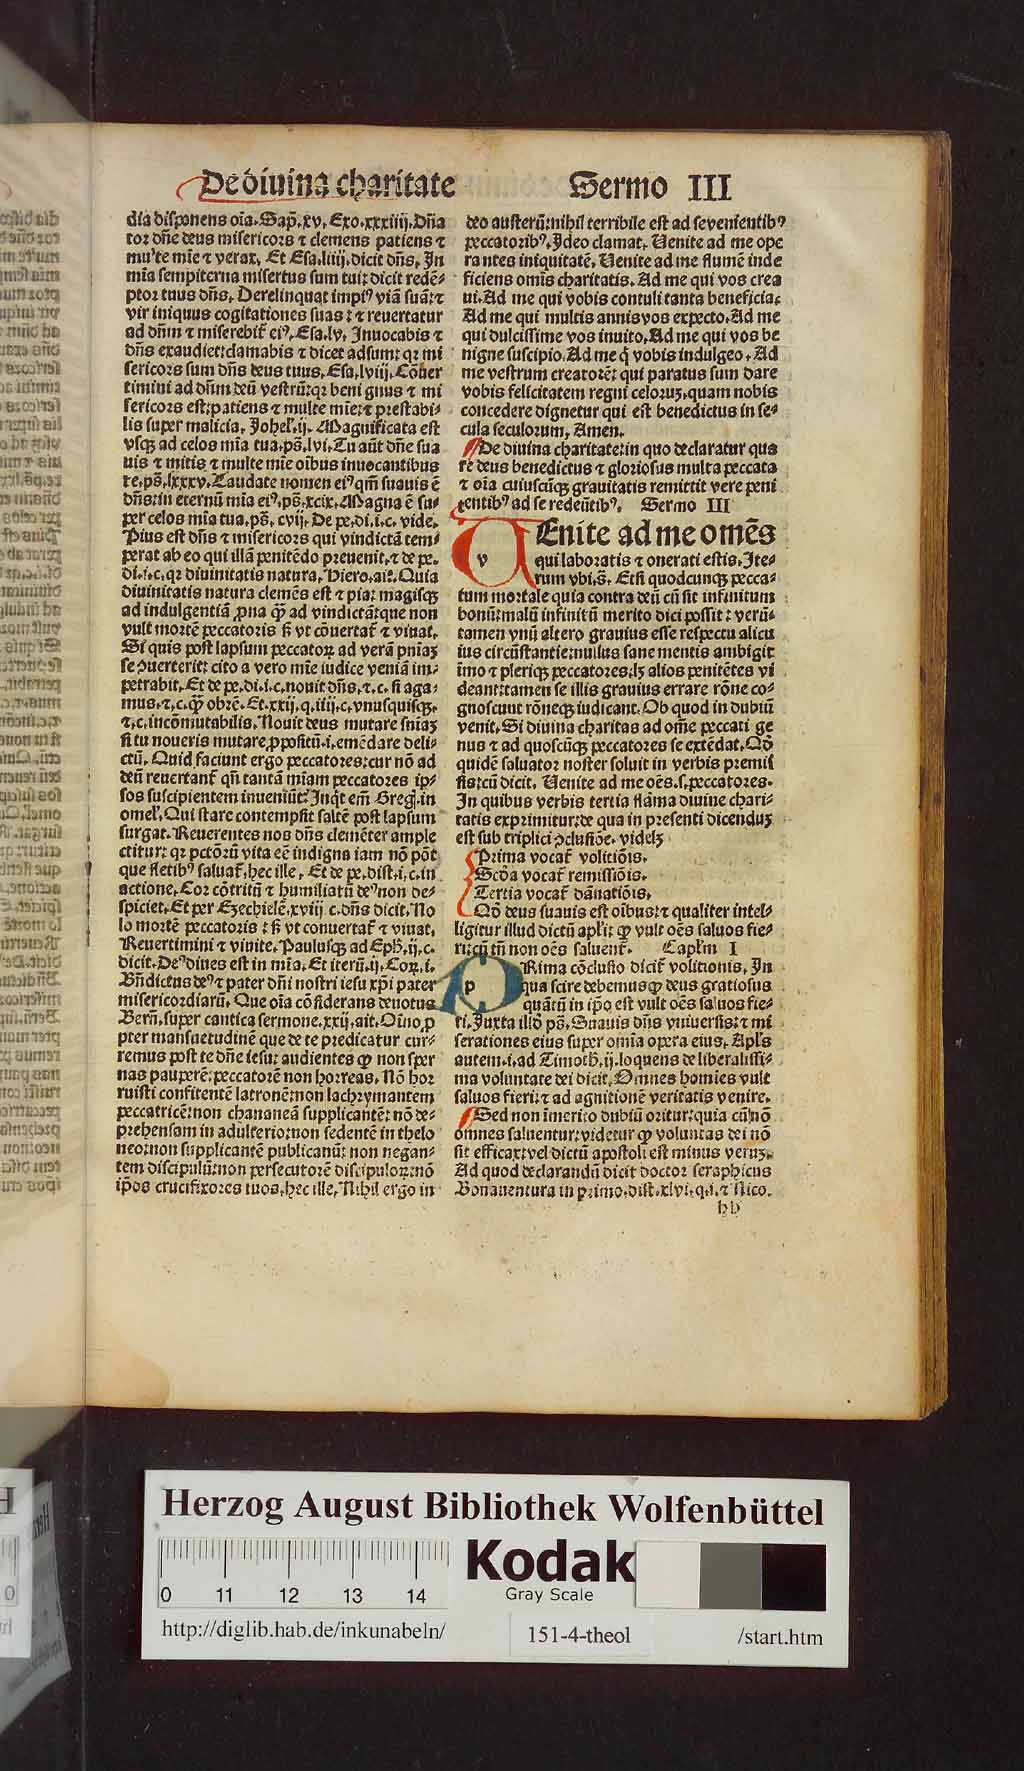 De diuina charitate Sermo III
dia disponens oīa. Sap̄. xv. Exo. xxxiiij. Dn̄a
tor dn̄e deus misericors ⁊ clemens patiens ⁊
mul̄te mīe ⁊ verax. Et Esa. liiij. dicit dn̄s. In
mīa sempiterna misertus sum tui: dicit redē⸗
ptor tuus dn̄s. Derelinquat impiꝰ viā suā: ⁊
vir iniquus cogitationes suas: ⁊ reuertatur
ad dn̄m ⁊ miserebit̄ eiꝰ. Esa. lv. Inuocabis ⁊
dn̄s exaudiet: clamabis ⁊ dicet adsum: qꝛ mi
sericors sum dn̄s deus tuus. Esa. lviij. Cōuer
timini ad dn̄m deū vestrū: qꝛ beni gnus ⁊ mi
sericors est: patiens ⁊ multe mīe: ⁊ prestabi⸗
lis super malicia. Johel̄. ij. Magnificata est
vsqꝫ ad celos mīa tua. ps̄. lvi. Tu aūt dn̄e sua
uis ⁊ mitis ⁊ multe mīe oībus inuocantibus
te. ps̄. lxxxv. Laudate nomen eiꝰ qm̄ suauis ē
dn̄s: in eternū mīa eiꝰ. ps̄. xcix. Magna ē su⸗
per celos mīa tua. ps̄. cvij. De pe. di. i. c. vide.
Pius est dn̄s ⁊ misericors qui vindictā tem⸗
perat ab eo qui illā penitēdo preuenit. ⁊ de pe.
di. i. c. qꝛ diuinitatis natura. Hiero. ait̄. Quia
diuinitatis natura clemēs est ⁊ pia: magisqꝫ
ad indulgentiā ꝓna qꝫ̄ ad vindictā: que non
vult mortē peccatoris sꝫ vt cōuertat̄ ⁊ viuat.
Si quis post lapsum peccatoꝝ ad verā pn̄iaꝫ
se ꝯuerterit: cito a vero mīe iudice veniā im⸗
petrabit. Et de pe. di. i. c. nouit dn̄s. ⁊. c. si aga⸗
mus. ⁊. c. qꝫ̄ obrē. Et. xxij. q. iiij. c. vnusquisqꝫ.
⁊. c. incōmutabilis. Nouit deus mutare sn̄iaꝫ
si tu noueris mutare ꝓpositū. i. emēdare deli⸗
ctū. Quid faciunt ergo peccatores: cur nō ad
deū reuertant̄ qn̄ tantā mīam peccatores ip⸗
sos suscipientem inueniūt? Inqͥt em̄ Greḡ. in
omel̄. Qui stare contempsit saltē post lapsum
surgat. Reuerentes nos dn̄s clemēter ample
ctitur: qꝛ pctōꝝ vita eē indigna iam nō pōt
que fletibꝰ saluat̄. hec ille. Et de pe. dist. i. c. in
actione. Cor cōtritū ⁊ humiliatū deꝰ non de⸗
spiciet. Et per Ezechielē. xviij c. dn̄s dicit. No
lo mortē peccatoris: sꝫ vt conuertat̄ ⁊ viuat.
Reuertimini ⁊ viuite. Paulusqꝫ ad Eph̄. ij. c.
dicit. Deꝰ diues est in mīa. Et iterū. ij. Coꝝ. i.
Bn̄dictus deꝰ ⁊ pater dn̄i nostri iesu xp̄i pater
misericordiarū. Que oīa cōsiderans deuotus
Bern̄. super cantica sermone. xxij. ait. Oīno ꝓ
pter mansuetudinē que de te predicatur cur⸗
remus post te dn̄e iesu: audientes ꝙ non sper
nas pauperē: peccatorē non horreas. Nō hor
ruisti confitentē latronē: non lachrymantem
peccatricē: non chananeā supplicantē: nō de⸗
prehensam in adulterio: non sedentē in thelo
neo: non supplicantē publicanū: non negan⸗
tem discipulū: non persecutorē discipuloꝝ: nō
ip̄os crucifixores tuos. hec ille. Nihil ergo in
deo austerū: nihil terribile est ad se venientibꝰ
peccatoribꝰ. Ideo clamat. Uenite ad me ope
rantes iniquitatē. Uenite ad me flumē inde
ficiens omīs charitatis. Ad me qui vos crea
ui. Ad me qui vobis contuli tanta beneficia.
Ad me qui multis annis vos expecto. Ad me
qui dulcissime vos inuito. Ad me qui vos be
nigne suscipio. Ad me qͥ vobis indulgeo. Ad
me vestrum creatorē: qui paratus sum dare
vobis felicitatem regni celoruꝫ. quam nobis
concedere dignetur qui est benedictus in se⸗
cula seculorum. Amen.
De diuina charitate: in quo declaratur qua
re deus benedictus ⁊ gloriosus multa peccata
⁊ oīa cuiuscūqꝫ grauitatis remittit vere peni
tentibꝰ ad se redeūtibꝰ. Sermo III
UEnite ad me omēs
qui laboratis ⁊ onerati estis. Ite⸗
rum vbi. s̄. Etsi quodcunqꝫ pecca⸗
tum mortale quia contra deū cū sit infinitum
bonū: malū infinitū merito dici possit: verū⸗
tamen vnū altero grauius esse respectu alicu
ius circūstantie: nullus sane mentis ambigit
īmo ⁊ pleriqꝫ peccatores: lꝫ alios penitētes vi
deant: tamen se illis grauius errare rōne co⸗
gnoscunt rōneqꝫ iudicant. Ob quod in dubiū
venit. Si diuina charitas ad om̄e peccati ge
nus ⁊ ad quoscūqꝫ peccatores se extēdat. Qd̄
quidē saluator noster soluit in verbis premis
sis: cū dicit. Uenite ad me oēs. s. peccatores.
In quibus verbis tertia flāma diuine chari⸗
tatis exprimitur: de qua in presenti dicenduꝫ
est sub triplici ꝯclusiōe. videlꝫ
Prima vocat̄ volitiōis.
Scd̄a vocat̄ remissiōis.
Tertia vocat̄ dānatiōis.
Qd̄ deus suauis est oībus: ⁊ qualiter intel⸗
ligitur illud dictū apl̄i: ꝙ vult oēs saluos fie⸗
ri: cū tn̄ non oēs saluent̄. Capl̄m I
PRima cōclusio dicit̄ volitionis. In
qua scire debemus ꝙ deus gratiosus
quātū in ip̄o est vult oēs saluos fie⸗
ri. Iuxta illd̄ ps̄. Suauis dn̄s vniuersis: ⁊ mi
serationes eius super omīa opera eius. Apl̄s
autem. i. ad Timoth̄. ij. loquens de liberalissi⸗
ma voluntate dei dicit. Omnes homīes vult
saluos fieri: ⁊ ad agnitionē veritatis venire.
Sed non īmerito dubiū oritur: quia cū nō
omnes saluentur: videtur ꝙ voluntas dei nō
sit efficax: vel dictū apostoli est minus veruꝫ.
Ad quod declarandū dicit doctor seraphicus
Bonauentura in primo. dist. xlvi. q. i. ⁊ Nico.
hh
Herzog August Bibliothek Wolfenbüttel
0 11 12 13 14
Kodak
Gray Scale
http://diglib.hab.de/inkunabeln/ 151-4-theol /start.htm